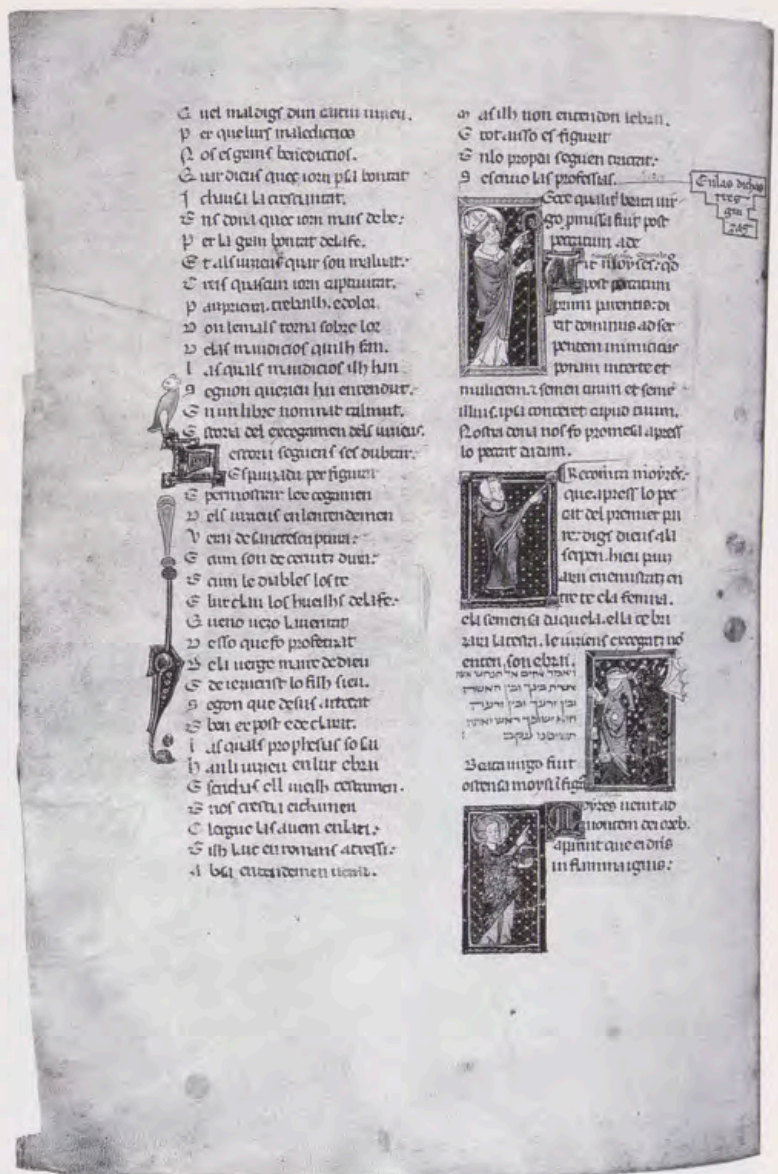 Quel maldigs dun autri iuzieu.
P er que lurs maledictios
N os es grans benedictios.
I chausa la crestiantat.
E ns dona quec iorn mais de be:
P er la gran bontat de la fe.
E t als iuzieus quar son malvat.
C reis quascun iorn captivitat.
P aupriera. trebailh. e dolor
D on lo mals torna sobre lor
D elas maudicios quilh fan.
L as quals maudicios ilh han
S egon quezieu hai entendut.
E n un libre nomnat talmut.
E storia del excegamen dels iuzieus.
L estoria seguens ses dubtar.
Es pauzada per figurar
E per mostrar lo cegamen
D els iuzieus en lentendemen
V erai de sancta escriptura:
E cum son de cervitz dura:
E cum lo diables los te
E lur clau los hueilhs de la fe:
D esso que fo profetizat
D e la verge maire de dieu
E de iezucrist lo filh sieu.
S egon que desus
E ben expost e declarat.
L as quals prophezias so sai
H an li iuzieu en lur ebrai
E scrichas ell vieilh testamen.
E nos crestia eichamen
C lergue las avem en lati:
E ilh lai en romans atressi:
A bsa entendemen verai.
M as ilh non entendon lebrai.
E tot aisso es figurat
E n lo propri seguen tractat:
S escrivo las professias.
En las dichas
tres
gui
zas
Ecce qualiter beata vir
go p missa fuit post
peccatum ade
Ait moyses: qd
post peccatum
primi parentis: di
xit dominus ad ser
pentem inimicitias
ponam inter te et
mulierem. ⁊ semen tuum et seme
illius. ipsa conteret caput tuum.
Nostra dona nos fo promesa apress
lo peccat dadam.
Recomta moyzes.
que apress lo pec
cat del premier pai
re: digs dieus a la
serpen. hieu pau
zarai enemistatz en
tre te e la femna.
e la semensa daquela. ella te bri
zara la testa. le iuzieus excegatz no
enten, son ebrai.
ויאמר אלהים אל הנחש איבה
אשית בינך ובין האשה
ובין זרעך ובין זרעה
הוא ישופך ראש ואתה
תשופנו עקב
Beata virgo fuit
ostensa moysi ī figu
Moyses venit ad
montem dei oreb.
aparuit que ei dns
in flamma ignis: